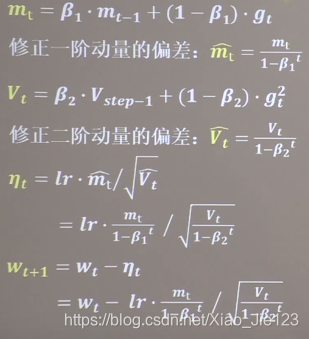 m_t = β_1 · m_{t-1} + (1 − β_1) · g_t
修正一阶动量的偏差: \widehat{m_t} = \frac{m_t}{1-β_1^t}
V_t = β_2 · V_{step-1} + (1 − β_2) · g_t^2
修正二阶动量的偏差: \widehat{V_t} = \frac{V_t}{1-β_2^t}
η_t = lr · \widehat{m_t} / \sqrt{\widehat{V_t}}
= lr · \frac{m_t}{1-β_1^t} / \sqrt{\frac{V_t}{1-β_2^t}}
w_{t+1} = w_t − η_t
= w_t − lr · \frac{m_t}{1-β_1^t} / \sqrt{\frac{V_t}{1-β_2^t}}
https://blog.csdn.net/Xiao_Jie123